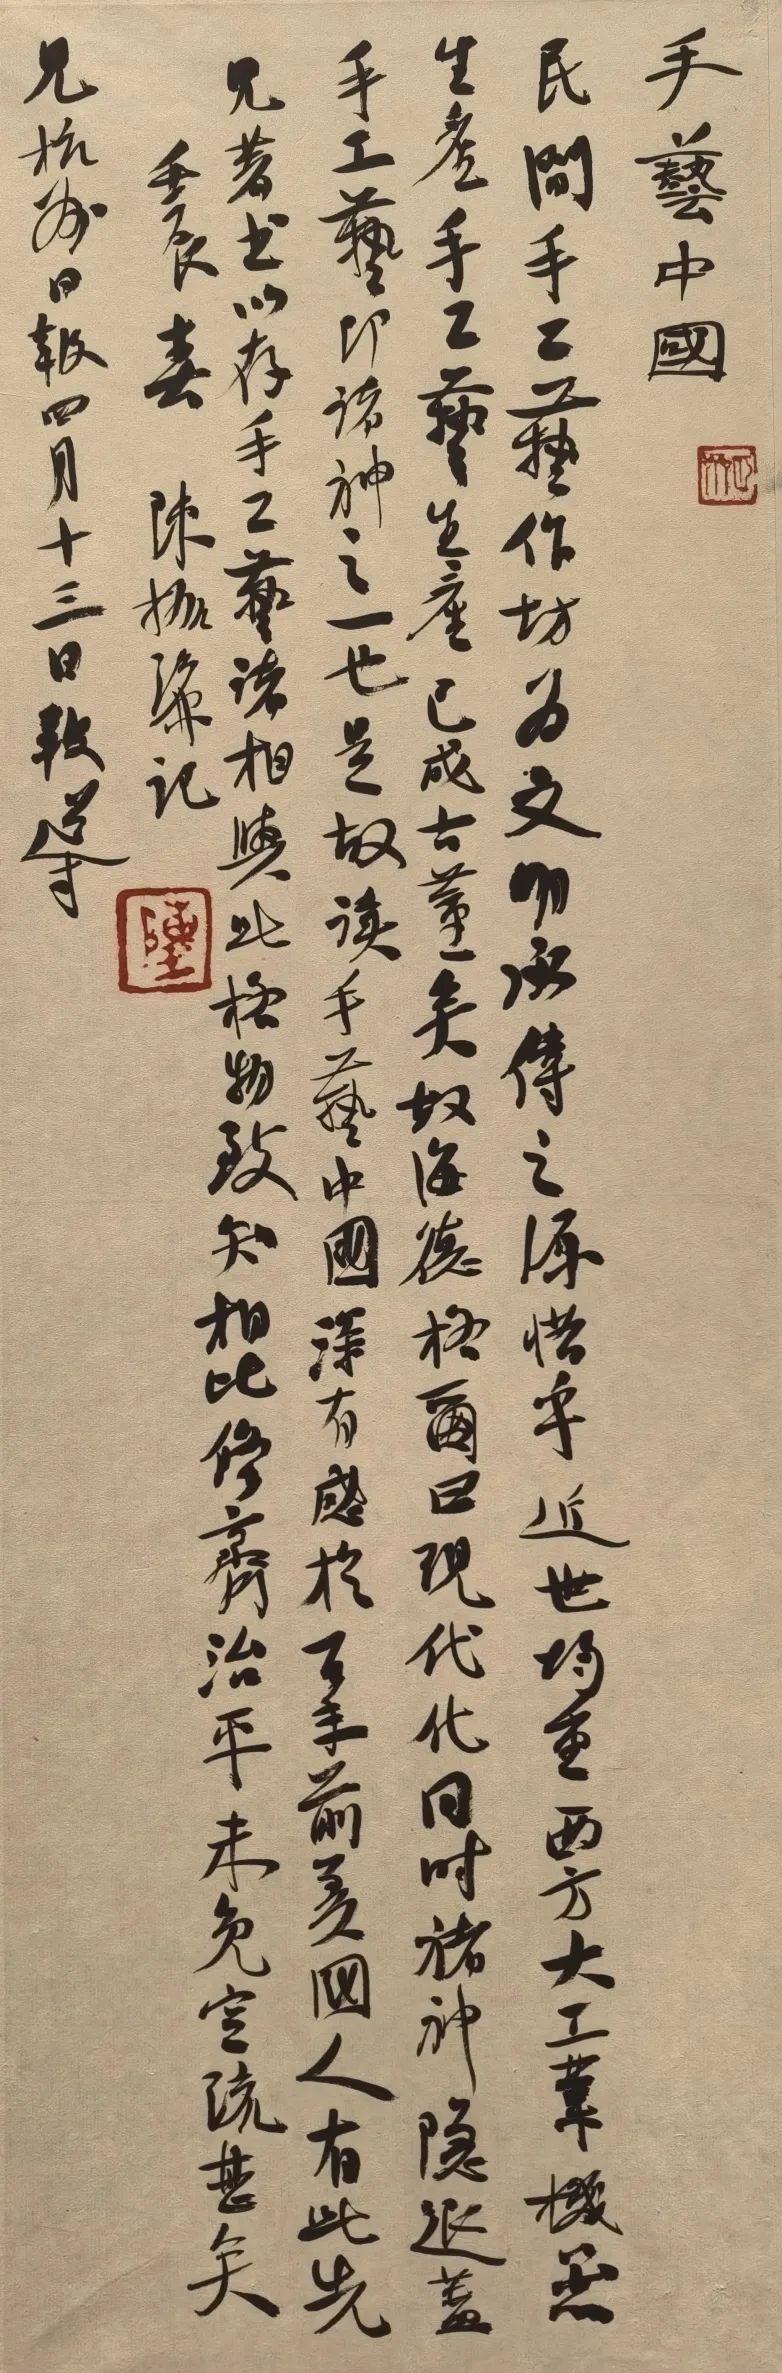 手藝中國
民間手工藝作坊為文明承傳之源惜乎近世均重西方大工業機器
生產手工藝生產已成古董矣故海德格爾曰現代化同時諸神隱退蓋
手工藝即諸神之一也是故讀手藝中國深有感於百年前美國人有此先
見著書以存手工藝諸相與此格物致知相比修齊治平未免空疏甚矣
壬辰春 陳振濂記
見杭州日報四月十三日報導